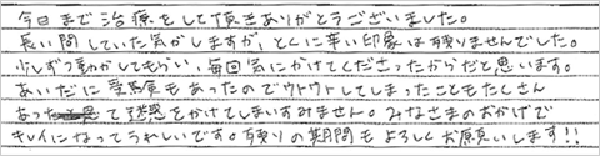 今日まで治療をして頂きありがとうございました。
長い間していた気がしますが、とくに辛い印象は有りませんでした。
少しずつ動かしてもらい、毎回気にかけてくださったからだと思います。
あいだに受験もあったのでウトウトしてしまったこともたくさん
あって迷惑をかけてしまいすみません。みなさまのおかげで
キレイになってうれしいです。残りの期間もよろしくお願いします!!